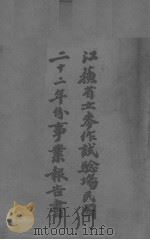 江蘇省立麥作試驗場民國
二十二年份事業報告書